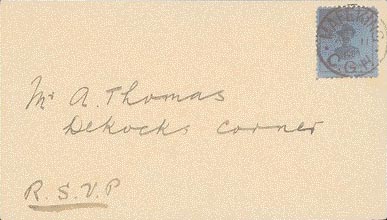 MAFEKING
C.G.H
Mr A. Thomas
Dekocks Corner
R.S.V.P